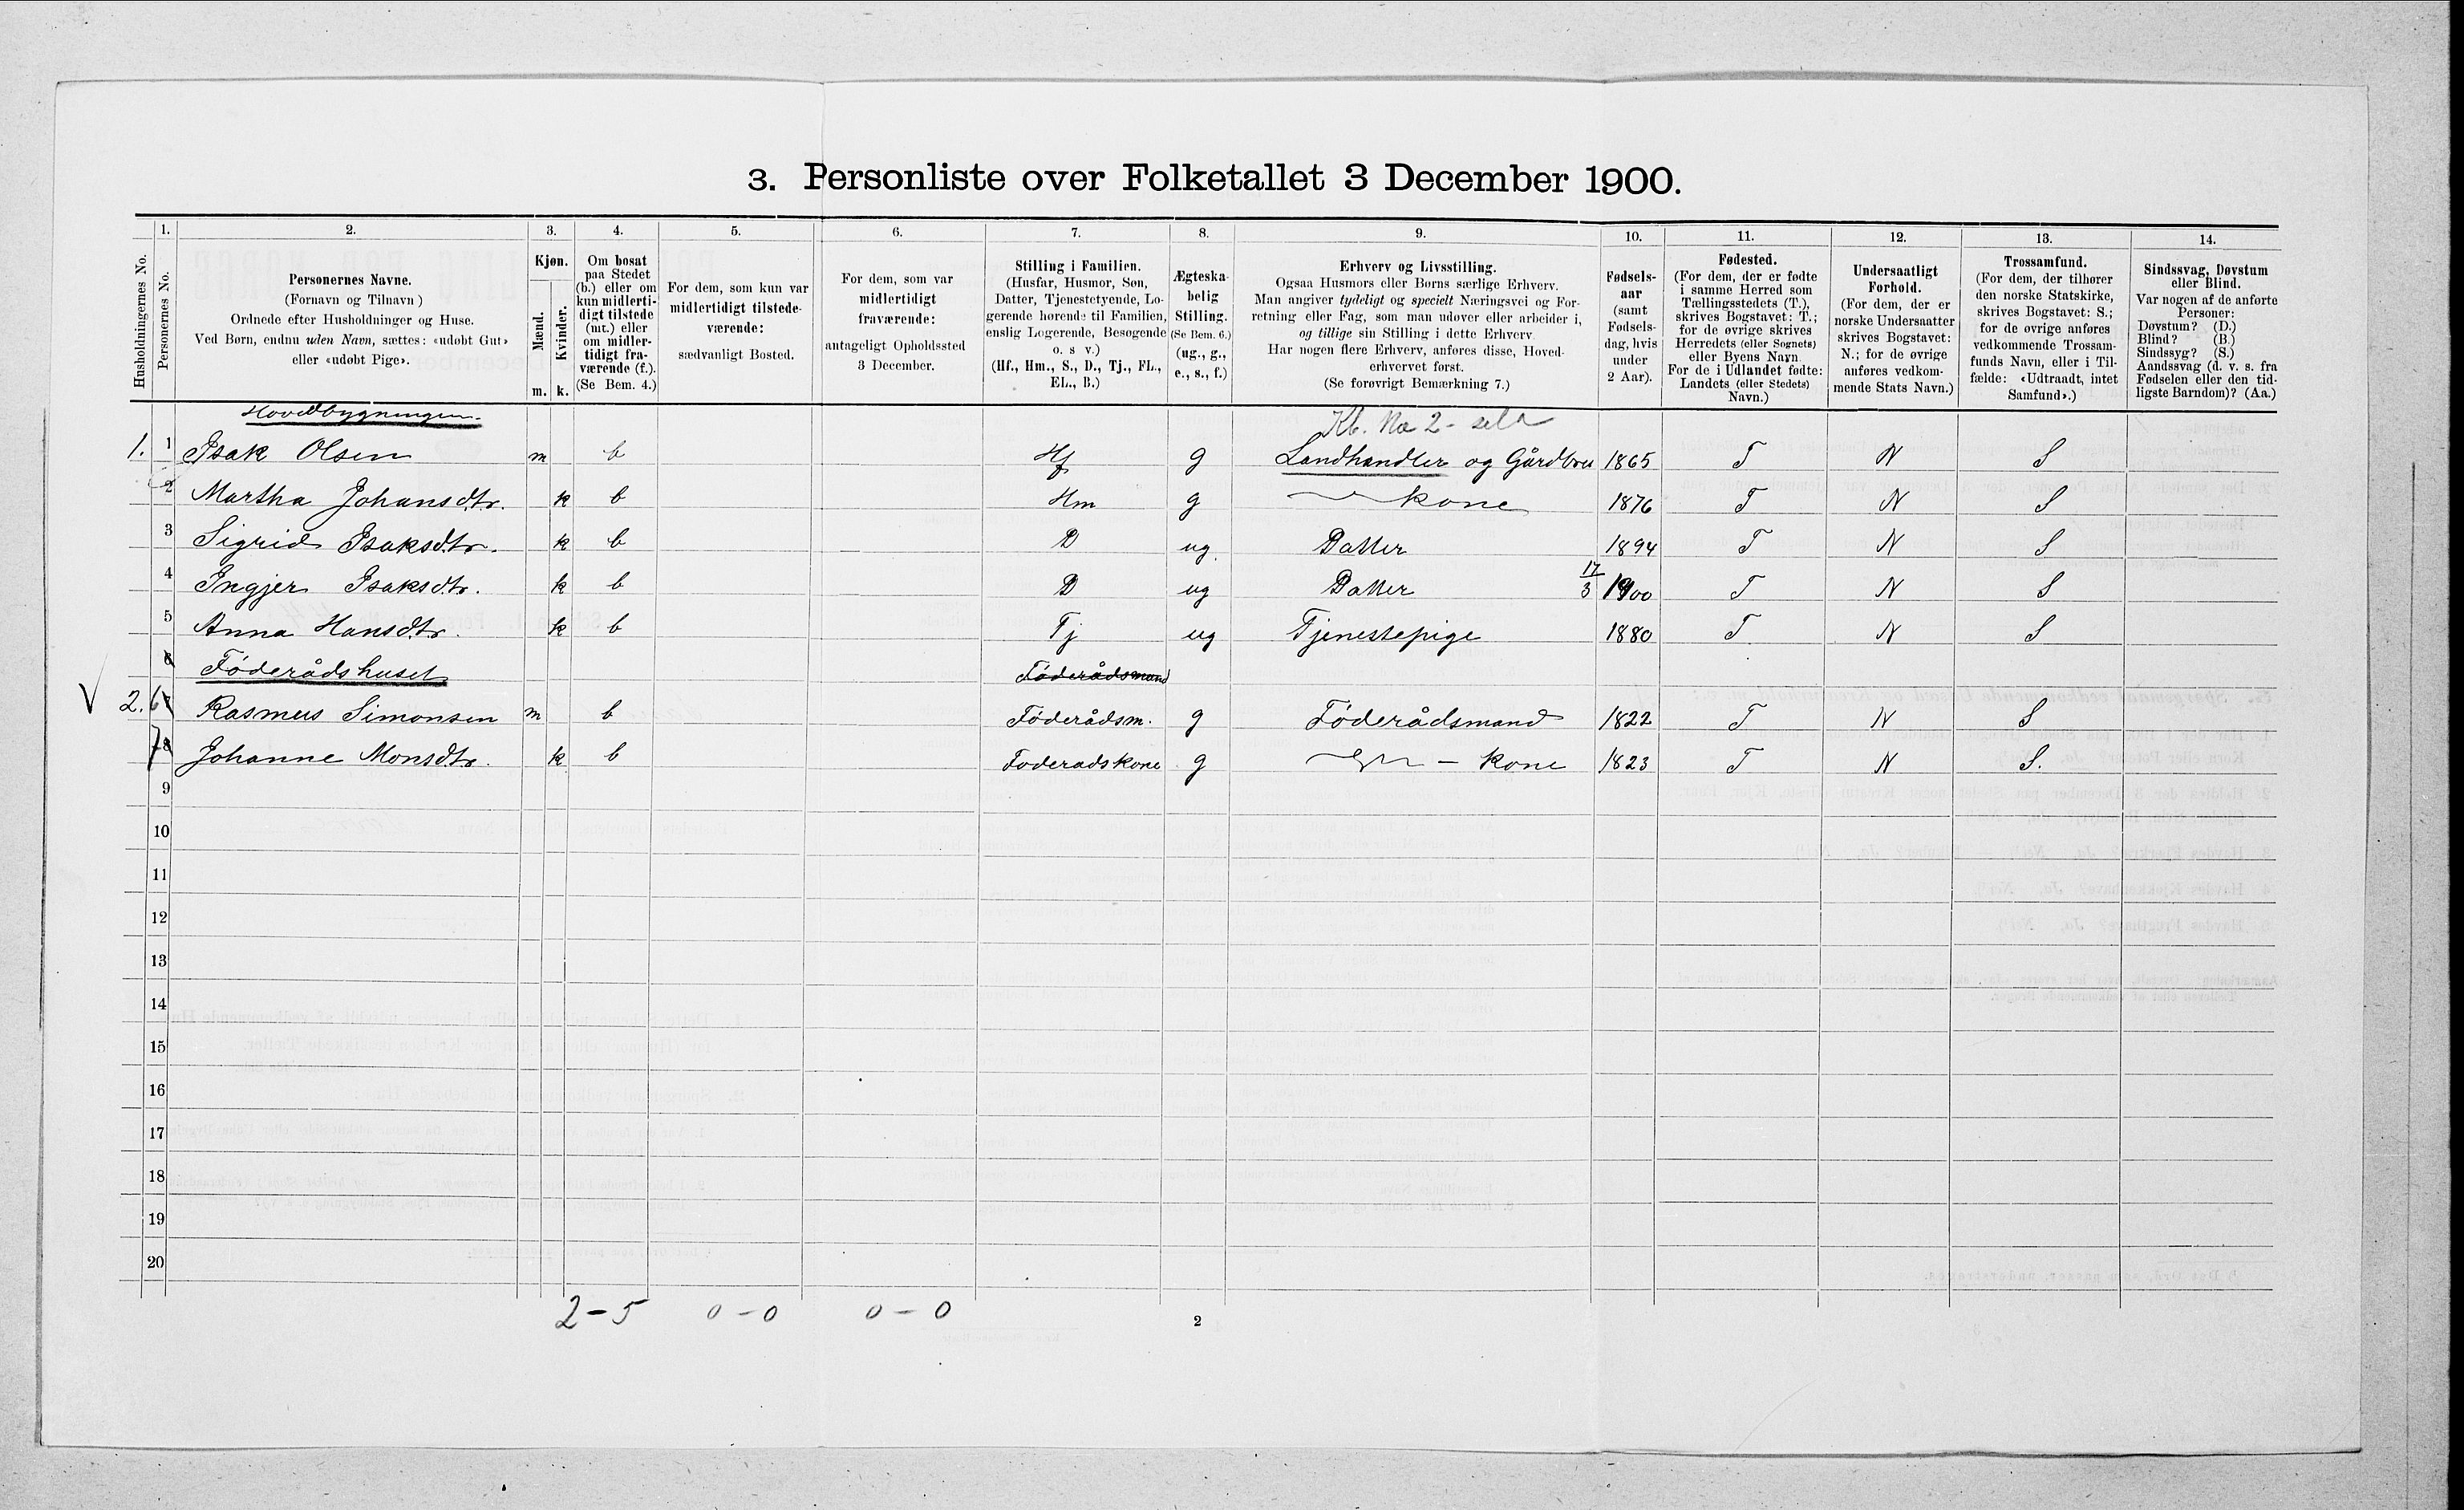 3. Personliste over Folketallet 3 December 1900.
Husholdningernes No.
1.
Personernes No.
2.
Personernes Navne.
(Fornavn og Tilnavn )
Ordnede efter Husholdninger og Huse.
Ved Børn, endnu uden Navn, sættes: «udøbt Gut»
eller «udøbt Pige».
3.
Kjøn.
Mænd.
Kvinder.
m.
k.
4.
Om bosat
paa Stedet
(b.) eller om
kun midlerti-
digt tilstede
(mt.) eller
om midler-
tidigt fra-
værende (f.).
(Se Bem. 4.)
5.
For dem, som kun var
midlertidigt tilstede-
værende:
sædvanligt Bosted.
6.
For dem, som var
midlertidigt
fraværende:
antageligt Opholdssted
3 December.
7.
Stilling i Familien.
(Husfar, Husmor, Søn,
Datter, Tjenestetyende, Lo-
gerende hørende til Familien,
enslig Logerende, Besøgende
o. s v.)
(Hf., Hm., S., D., Tj., FL.,
EL., B.)
8.
Ægteska-
belig
Stilling.
(Se Bem. 6.)
(ug., g.,
e., s., f.)
9.
Erhverv og Livsstilling.
Ogsaa Husmors eller Børns særlige Erhverv.
Man angiver tydeligt og specielt Næringsvei og For-
retning eller Fag, som man udøver eller arbeider i,
og tillige sin Stilling i dette Erhverv.
Har nogen flere Erhverv, anføres disse, Hoved-
erhvervet først.
(Se forøvrigt Bemærkning 7.)
10.
Fødsels-
aar
(samt
Fødsels-
dag, hvis
under
2 Aar).
11.
Fødested.
(For dem, der er fødte
i samme Herred som
Tællingsstedets (T.),
skrives Bogstavet: T.;
for de øvrige skrives
Herredets (eller Sognets)
eller Byens Navn.
For de i Udlandet fødte:
Landets (eller Stedets)
Navn.)
12.
Undersaatligt
Forhold.
(For dem, der er
norske Undersaatter
skrives Bogstavet:
N.; for de øvrige
anføres vedkom-
mende Stats Navn.)
13.
Trossamfund.
(For dem, der tilhører
den norske Statskirke,
skrives Bogstavet: S.;
for de øvrige anføres
vedkommende Trossam-
funds Navn, eller i Til-
fælde: «Udtraadt, intet
Samfund».)
14.
Sindssvag, Døvstum
eller Blind.
Var nogen af de anførte
Personer:
Døvstum? (D.)
Blind? (B.)
Sindssyg? (S.)
Aandssvag (d. v. s. fra
Fødselen eller den tid-
ligste Barndom)? (Aa.)
Hovedbygningen. Kb. No 2-
1. 1 Isak Olsen m b Hf g Landhandler og Gårdbru 1865 T N S
2 Martha Johansdtr. k b Hm g kone 1876 T N S
3 Sigrid Isaksdtr. k b D ug. Datter 1894 T N S
4 Ingjer Isaksdtr. k b D ug Datter 17/3 1900 T N S
5 Anna Hansdtr. k b Tj ug Tjenestepige 1880 T N S
6 Föderådshuset Föderådsmand
V 2. 6 7 Rasmus Simonsen m b Föderådsm. g Föderådsmand 1822 T N S
7 8 Johanne Monsdtr. k b Foderadskone g — kone 1823 T N S.
9
10
11
12
13
14
15
16
17
18
19
20
2-5 0-0 0-0
2